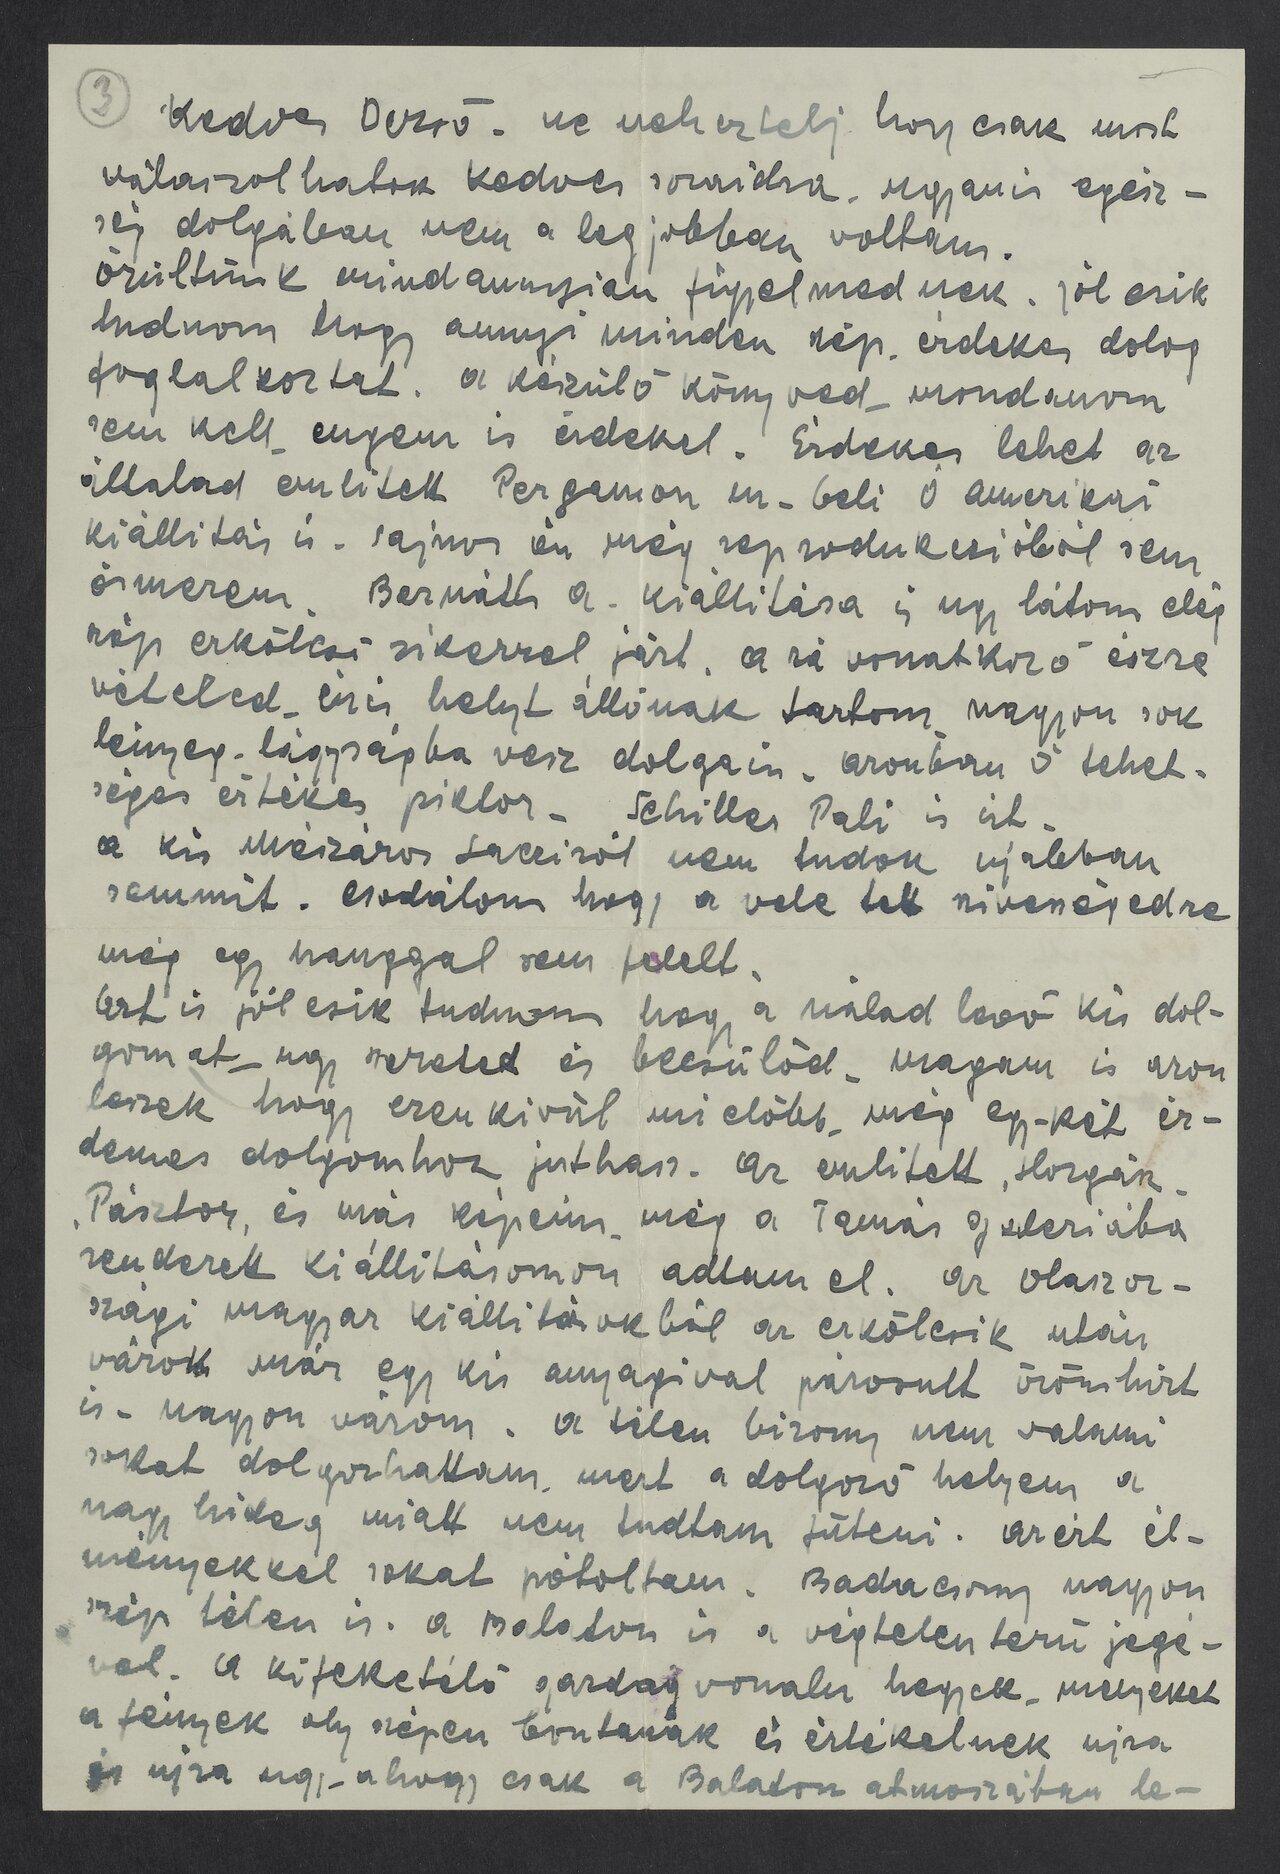 3
Kedves Dezső - ne neheztelj hogy csak most
válaszolhatok kedves soraidra. ugyanis egész-
ség dolgában nem a legjobban voltam.
örültünk mindannyian figyelmednek. jól esik
tudnom hogy annyi minden szép. érdekes dolog
foglalkoztat. a készülő könyved - mondanom
sem kell - engem is érdekel. Érdekes lehet az
általad emlitett Pergamon m-beli ó amerikai
kiállitás is - sajnos én még reprodukcióból sem
ösmerem. Bernáth A. kiállitása is ugy látom elég
szép erkölcsi sikerrel járt. a rá vonatkozó észre
vételed - én is helyt állónak tartom nagyon sok
lényeg - lágyságba vesz dolgain - azonban ő tehet-
séges értékes piktor - Schiller Pali is irt -
a kis Mészáros Laciról nem tudok ujabban
semmit. csodálom hogy a vele tett szivességedre
még egy hanggal sem felelt.
Ezt is jól esik tudnom hogy a nálad levő kis dol-
gomat - ugy szereted és becsülöd - magam is azon
leszek hogy ezen kivül mielőbb - még egy-két ér-
demes dolgomhoz juthass. Az emlitett „Horgász„
„Pásztor„ és más képeim - még a Tamás galeriába
rendezett kiállitásomon adtam el. Az olaszor-
szági magyar kiállitásokból az erkölcsik után
várok már egy kis anyagival párosult örömhirt
is - nagyon várom. a télen bizony nem valami
sokat dolgozhattam, mert a dolgozó helyem a
nagy hideg miatt nem tudtam füteni. azért él-
ményekkel sokat pótoltam. Badacsony nagyon
szép télen is. a Balaton is a végtelen terü jegé-
vel. a kifeketéllő gazdag vonalu hegyek - melyeket
a fények oly szépen bontanak és értékelnek ujra
és ujra ugy - ahogy csak a Balaton atmoszában le-